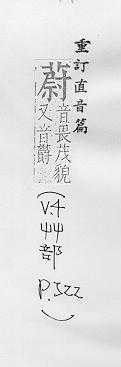 重訂直音篇
蔚
音畏茂貌
又音爵
(V.4
艸部
P.322)